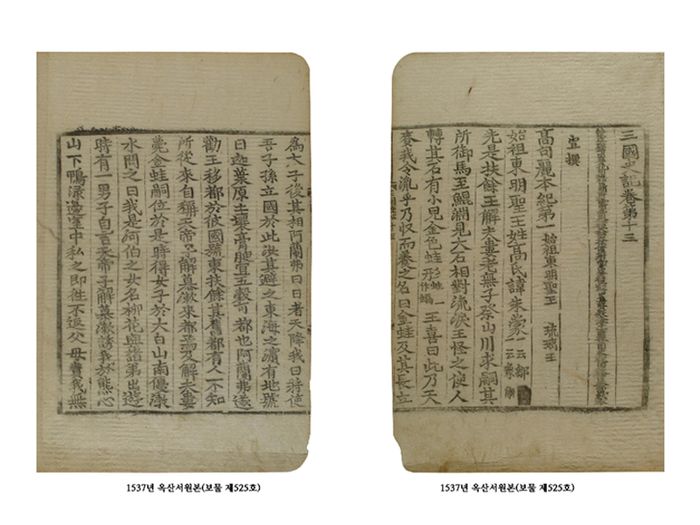 三國史記卷第十三
宣撰
高句麗本紀第一 始祖東明聖王 琉璃王
始祖東明聖王姓高氏諱朱蒙 一云鄒 一云
先是扶餘王解夫婁老無子祭山川求嗣其
所御馬至鯤淵見大石相對流淚王怪之使人
轉其石有小兒金色蛙形 蛙一作蝸 王喜曰此乃天
賚我令胤乎乃収而養之名曰金蛙及其長立
爲太子後其相阿蘭弗曰日者天降我曰將使
吾子孫立國於此汝其避之東海之濱有地號
曰迦葉原土壤膏腴宜五穀可都也阿蘭弗遂
勸王移都於彼國號東扶餘其舊都有人不知
所從來自稱天帝子解慕漱來都焉及解夫婁
薨金蛙嗣位於是時得女子於太白山南優渤
水問之曰我是河伯之女名柳花與諸弟出遊
時有一男子自言天帝子解慕漱誘我於熊心
山下鴨淥邊室中私之即徃不返父母責我無
1537년 옥산서원본(보물 제525호)
1537년 옥산서원본(보물 제525호)